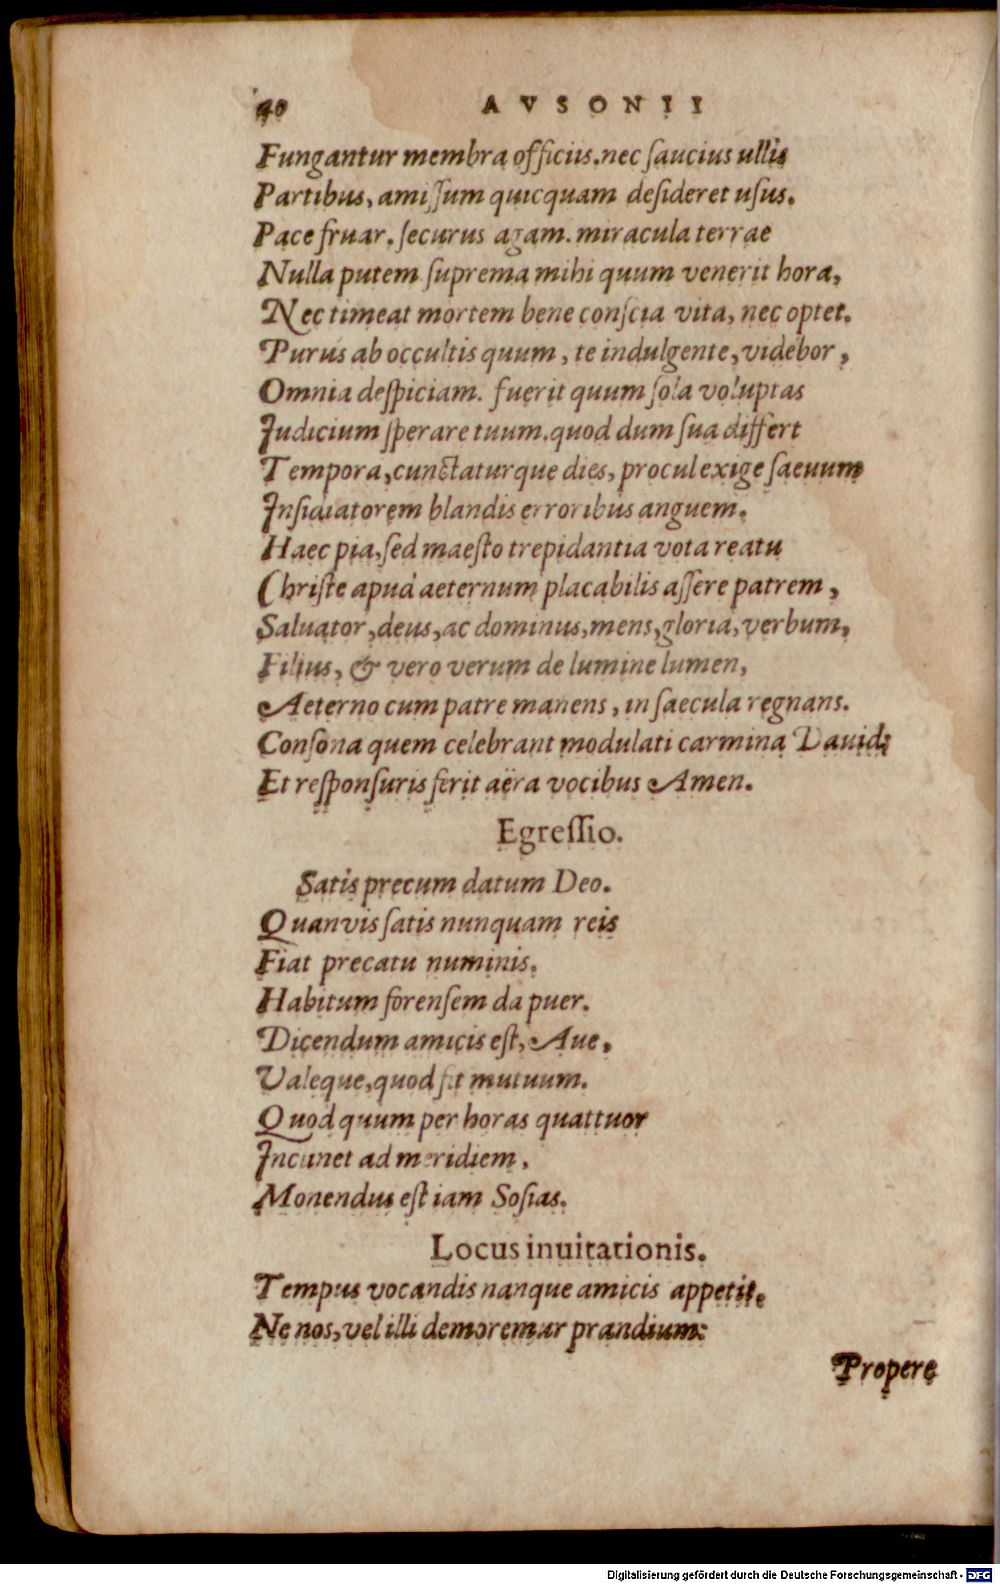 40 AVSONII
Fungantur membra officiis. nec ſaucius ullis
Partibus, amiſſum quicquam deſideret uſus.
Pace fruar. ſecurus agam. miracula terrae
Nulla putem ſuprema mihi quum venerit hora,
Nec timeat mortem bene conſcia vita, nec optet.
Purus ab occultis quum, te indulgente, videbor,
Omnia deſpiciam. fuerit quum ſola voluptas
Judicium ſperare tuum. quod dum ſua differt
Tempora, cunctaturque dies, procul exige ſaeuum
Inſidiatorem blandis erroribus anguem.
Haec pia, ſed maeſto trepidantia vota reatu
Chriſte apud aeternum placabilis aſſere patrem,
Saluator, deus, ac dominus, mens, gloria, verbum,
Filius, & vero verum de lumine lumen,
Aeterno cum patre manens, in ſaecula regnans.
Conſona quem celebrant modulati carmina Dauid:
Et reſponſuris ferit aëra vocibus Amen.
Egreſſio.
Satis precum datum Deo.
Quanvis ſatis nunquam reis
Fiat precatu numinis.
Habitum forenſem da puer.
Dicendum amicis eſt, Aue,
Valeque, quod fit mutuum.
Quod quum per horas quattuor
Incunet ad meridiem,
Monendus eſt iam Soſias.
Locus inuitationis.
Tempus vocandis nanque amicis appetit.
Ne nos, vel illi demoremur prandium:
Propere
Digitalisierung gefördert durch die Deutsche Forschungsgemeinschaft - DFG